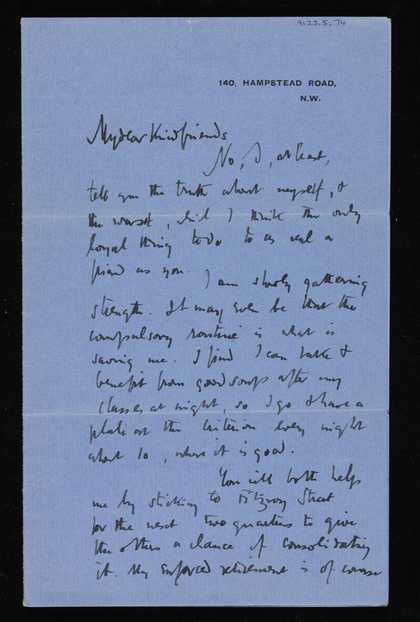 9125.5.74
140, HAMPSTEAD ROAD,
N.W.
My dear Kind friends
No, I, at least,
tell you the truth about myself, &
the worst, which I think the only
loyal thing to do to as real a
friend as you. I am slowly gathering
strength. It may even be that the
compulsory routine is what is
saving me. I find I can take &
benefit from good soups after my
classes at night, so I go & have a
plate at the Criterion every night
about 10, where it is good.
You will both help
me by sticking to Fitzroy Street
for the next two quarters to give
the others a chance of consolidating
it. My enforced retirement is of course